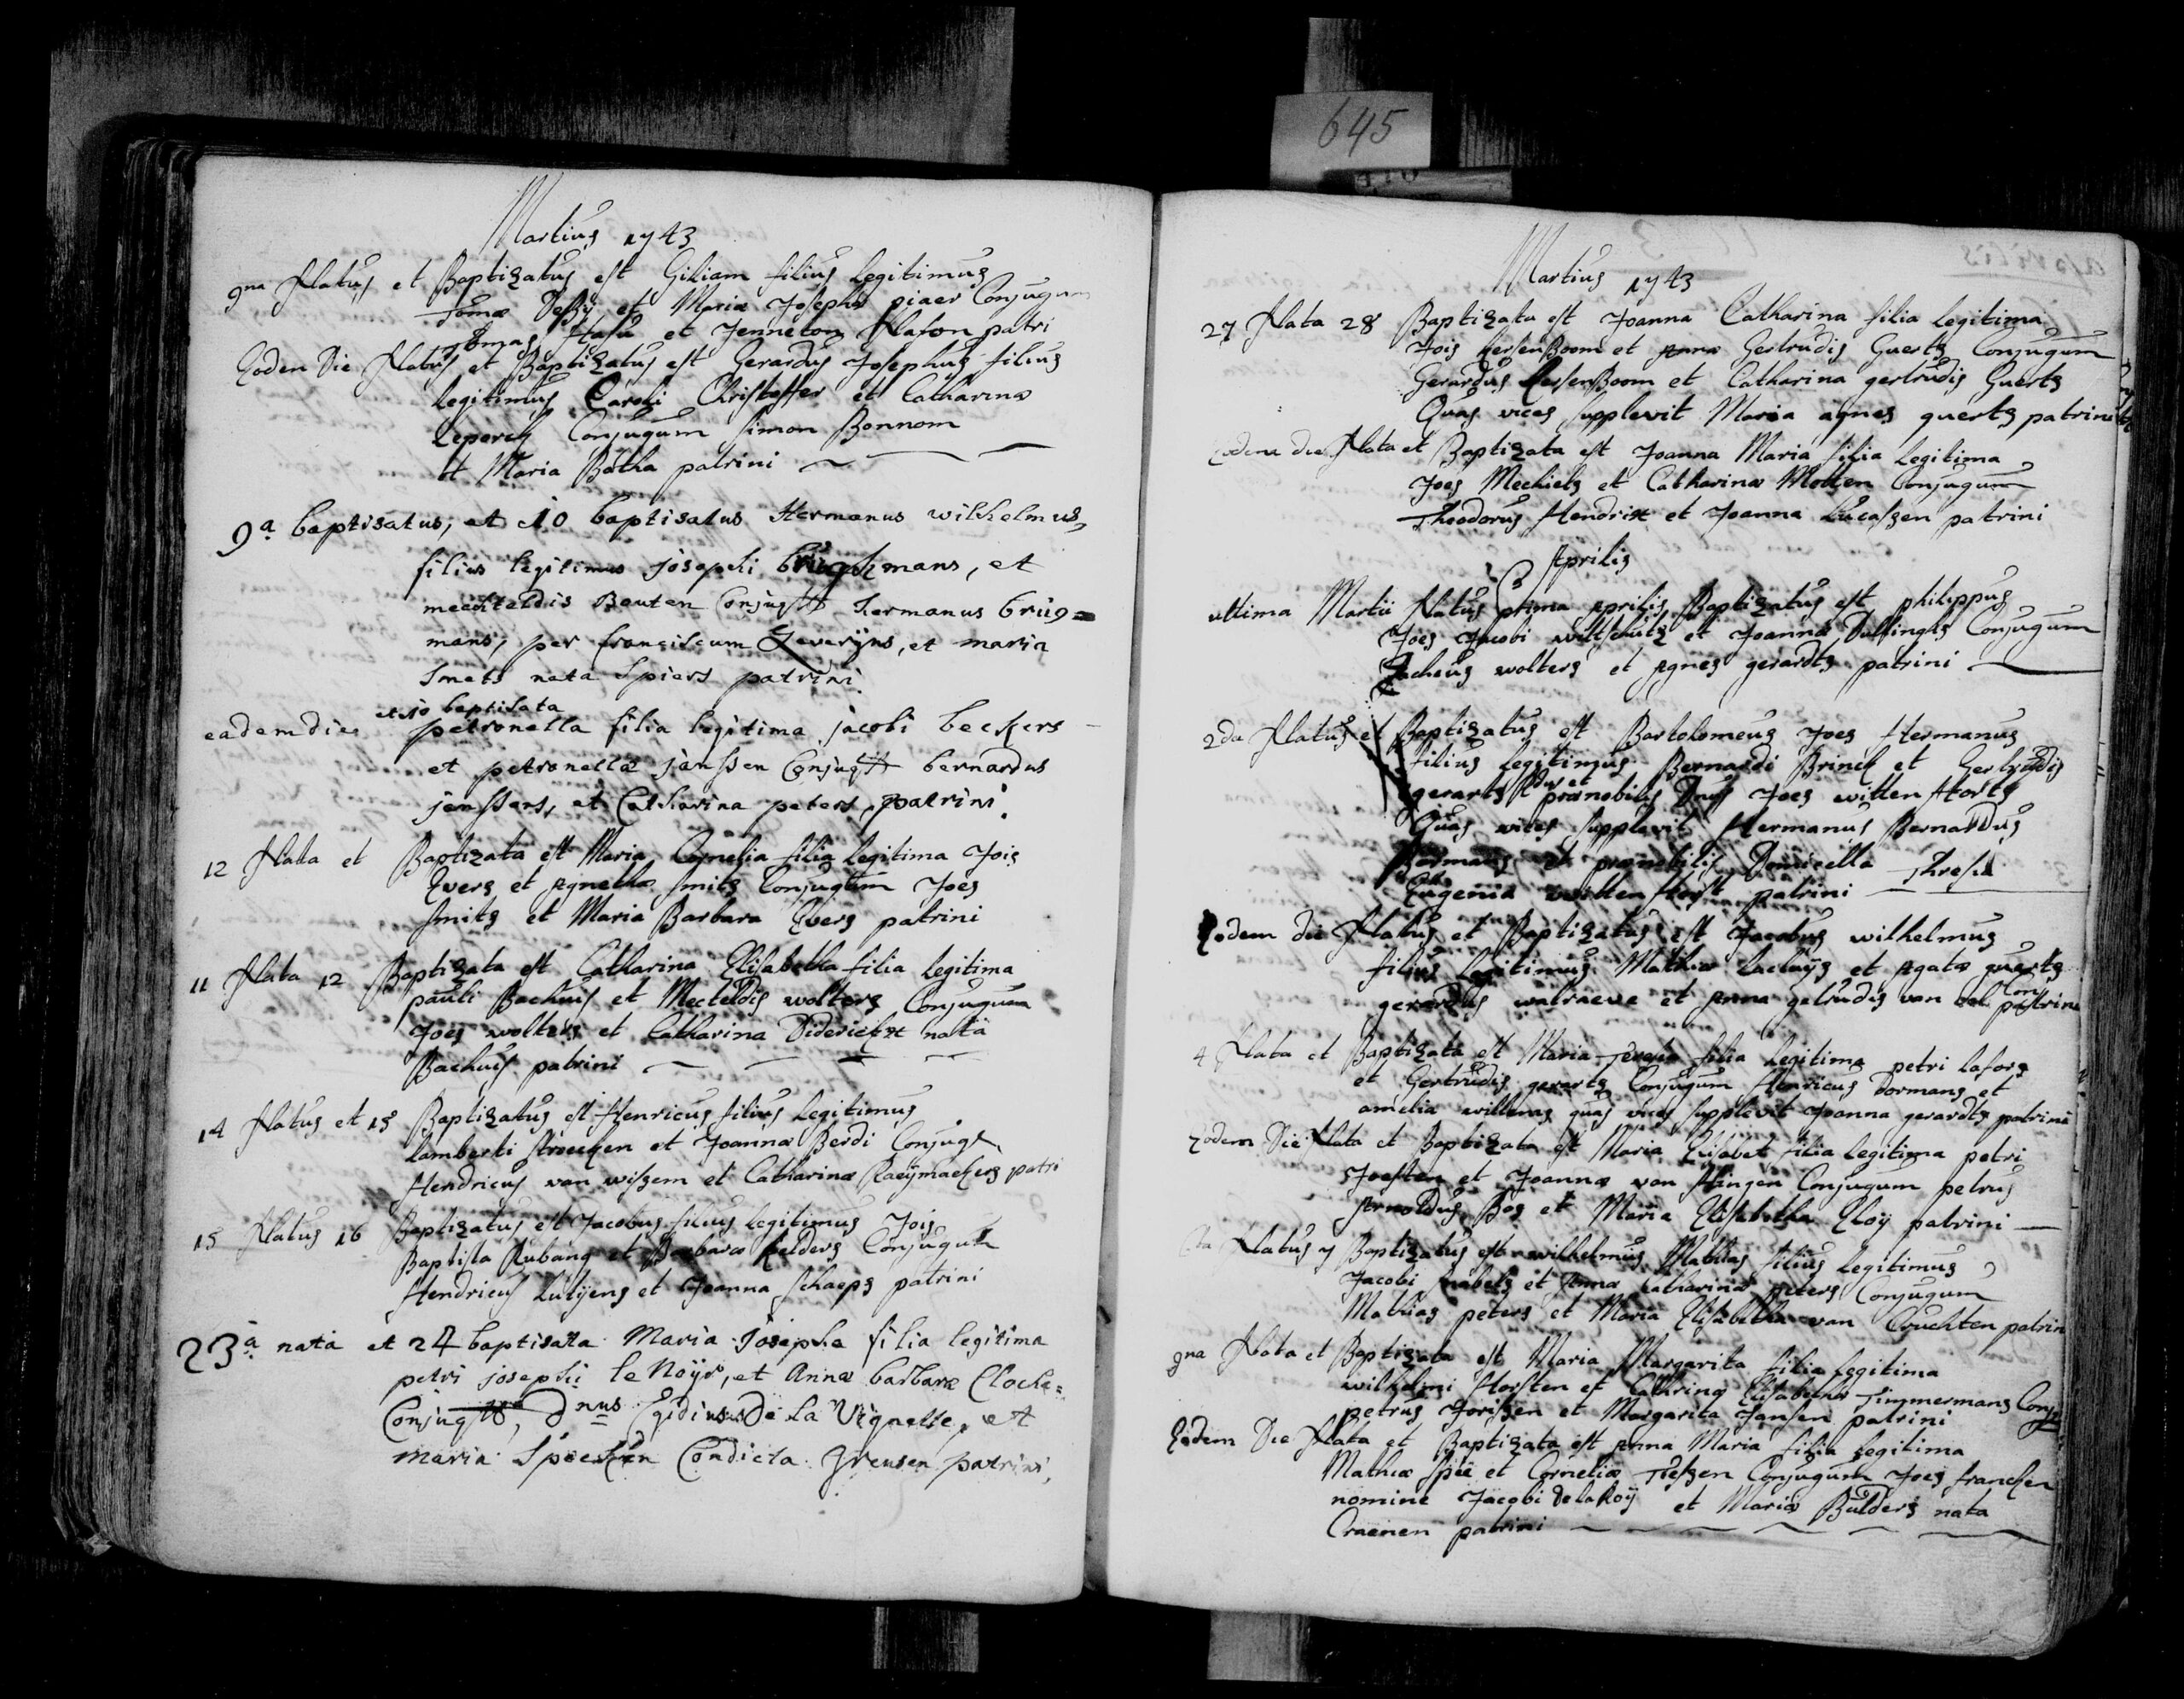 645
Martius 1743
9na Natus et Baptizatus est Giliam filius legitimus
Tomæ et Mariæ Josephæ piaer Conjugum
Tomas et Jenneton Nafon patri
Eoden Die Natus et Baptizatus est Gerardus Josephus filius
legitimus Caroli Christoffer et Catharinæ
Leperch Conjugum simon Bonnom
et Maria Botha patrini
9a baptisatus, et 10 baptisatus Hermanus wilhelmus,
filius legitimus josephi brughmans, et
mechteldis Bouten Conjugum hermanus brug=
mans, per franciscum Zeverijns, et maria
Smets nata Spiers patrini.
et 10 baptisata
eadem die petronella filia legitima jacobi beckers
et petronellæ janssen Conjugum bernardus
janssens, et Catharina peters, patrini.
12 Nata et Baptizata est Maria Cornelia filia legitima Jois
Evers et Agnethæ smits Conjugum Joes
smits et Maria Barbara Evers patrini
11 Nata 12 Baptizata est Catharina Elisabetha filia legitima
pauli Backus et Mecteldis wolters Conjugum
Joes wolters et Catharina Diderickx nata
Backus patrini
14 Natus et 15 Baptizatus est Henricus filius legitimus
Lamberti stroecken et Joannæ Berdi Conjug
Hendricus van wissem et Catharina Raeijmackers patri
15 Natus 16 Baptizatus est Jacobus filius legitimus Jois
Baptista Rubang et Barbaræ Relders Conjugum
Hendricus Lutijens et Joanna schaeps patrini
23a nata et 24 baptisata Maria Josepha filia legitima
petri josephi le Noijr, et Annæ barbaræ Clocke=
Conjugum, Dnus Egidius De La Vignette, et
maria Spoesken Condicta Greusen patrini,
Martius 1743
27 Nata 28 Baptizata est Joanna Catharina filia legitima
Jois KersenBoom et Gertrudis Guerts Conjugum
Gerardus KersenBoom et Catharina gertrudis Guerts
Quas vices supplevit Maria agnes guerts patrini
Eodem die Nata et Baptizata est Joanna Maria filia legitima
Joes Mechiels et Catharina Motsen Conjugum
Theodorus Hendrix et Joanna Lucassen patrini
Aprilis
ultima Martii Natus prima Aprilis Baptizatus est philippus
Joes Jacobi et Joannæ Dullings Conjugum
wolters et Agnes gerardts patrini
2da Natus et Baptizatus est Bartolomeus Joes Hermanus
filius legitimus Bernardi Brinck et Gertrudis
gerarts prænobilis Dnus Joes witten Horts
Quas vices supplevit Hermanus Bernardus
et prænobilis Domicella
Eugenia witten Horst patrini
Eodem die Natus et Baptizatus est Jacobus wilhelmus
filius legitimus Mathiæ et Agatæ guerts
gerardus walraeve et Anna getrudis van patrini
4 Nata et Baptizata est Maria Teresia filia legitima petri lafors
et Gertrudis gerarts Conjugum Henricus Dormans et
amelia willemas quas vices supplevit Joanna gerardts patrini
Eodem Die Nata et Baptizata est Maria Elisabet filia legitima petri
Joosten et Joannæ van Hingen Conjugum petrus
Arnoldus Bos et Maria Elisabetha Eloij patrini
Natus 7 Baptizatus est wilhelmus Mathias filius legitimus
Jacobi nabels et Annæ Catharinæ peters Conjugum
Mathias peters et Maria Elisabetha van Cruchten patrin
9na Nata et Baptizata est Maria Margarita filia legitima
wilhelmi Horsten et Elisabetha Timmermans Conj
petrus Jorissen et Margarita Jansen patrini
Eodem Die Nata et Baptizata est Anna Maria filia legitima
Mathiæ spee et Corneliæ Conjugum Joes francken
nomine Jacobi de la Roij et Maria Bulders nata
Craenen patrini